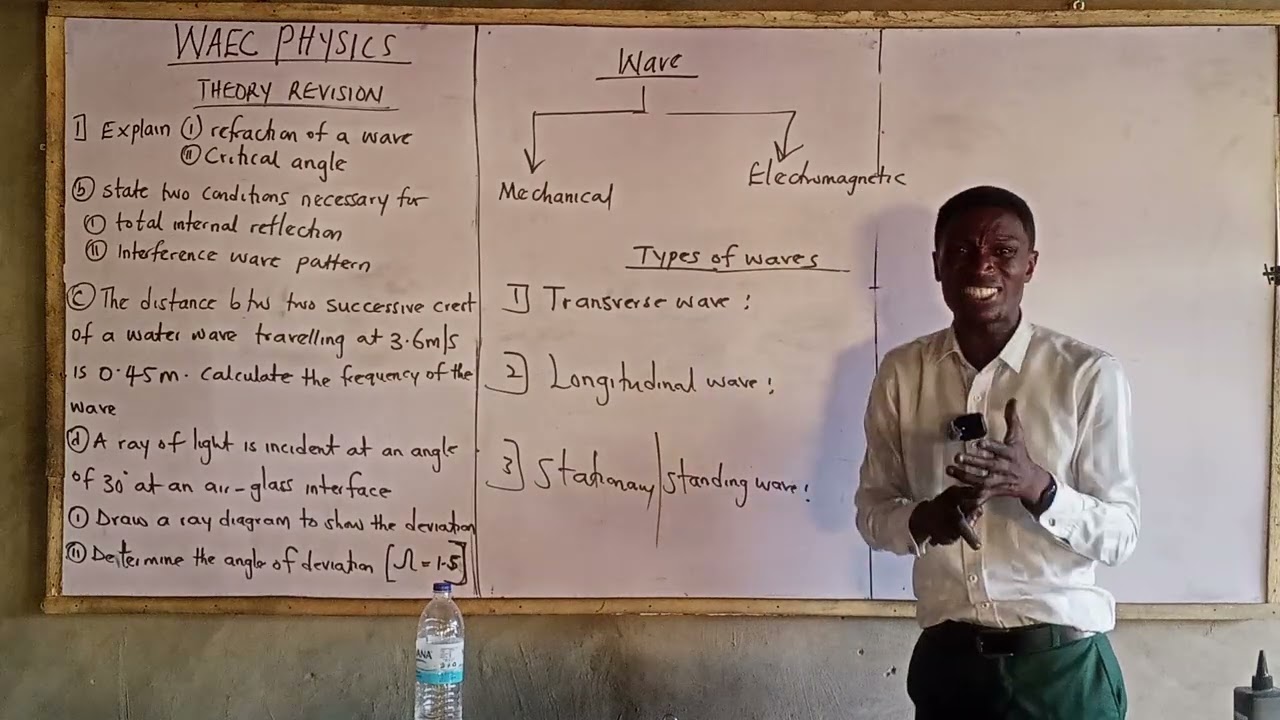 WAEC PHYSICS
THEORY REVISION
1] Explain (i) refraction of a wave
(ii) Critical angle
(b) state two conditions necessary for
(i) total internal reflection
(ii) Interference wave pattern
(c) The distance btw two successive crest
of a water wave travelling at 3.6m/s
is 0.45m. Calculate the frequency of the
wave
(d) A ray of light is incident at an angle
of 30° at an air-glass interface
(i) Draw a ray diagram to show the deviation
(ii) Determine the angle of deviation [n = 1.5]
Wave
Mechanical
Electromagnetic
Types of waves
1] Transverse wave:
2] Longitudinal wave:
3] Stationary/standing wave: